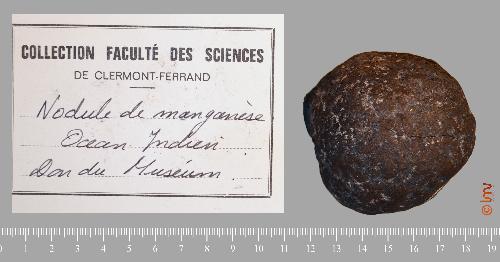 COLLECTION FACULTÉ DES SCIENCES
DE CLERMONT-FERRAND
Nodule de manganèse
Océan Indien
Don du Muséum
© lmv
0 1 2 3 4 5 6 7 8 9 10 11 12 13 14 15 16 17 18 19